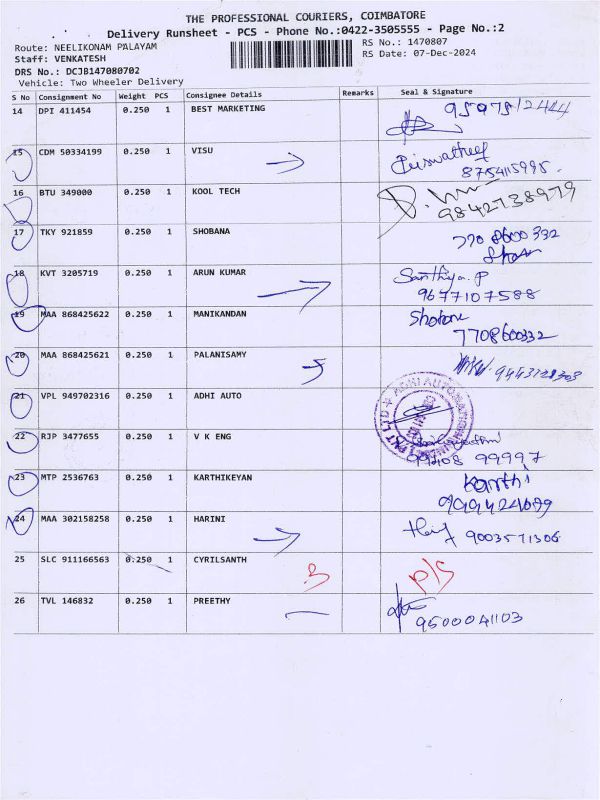 THE PROFESSIONAL COURIERS, COIMBATORE
Delivery Runsheet - PCS - Phone No.:0422-3505555 - Page No.:2
Route: NEELIKONAM PALAYAM
RS No.: 1470807
Staff: VENKATESH
RS Date: 07-Dec-2024
DRS No.: DCJB147080702
Vehicle: Two Wheeler Delivery
S No Consignment No Weight PCS Consignee Details Remarks Seal & Signature
14 DPI 411454 0.250 1 BEST MARKETING
15 CDM 50334199 0.250 1 VISU
8754115995.
16 BTU 349000 0.250 1 KOOL TECH
9842738979
17 TKY 921859 0.250 1 SHOBANA
770 8600 332
18 KVT 3205719 0.250 1 ARUN KUMAR Santhiya. P
9677107588
19 MAA 868425622 0.250 1 MANIKANDAN Shobana
7708600332
20 MAA 868425621 0.250 1 PALANISAMY
21 VPL 949702316 0.250 1 ADHI AUTO
22 RJP 3477655 0.250 1 V K ENG
99408 99997
23 MTP 2536763 0.250 1 KARTHIKEYAN Karthi
24 MAA 302158258 0.250 1 HARINI 9003571306
25 SLC 911166563 0.250 1 CYRILSANTH 3 P/S
26 TVL 146832 0.250 1 PREETHY
9500041103